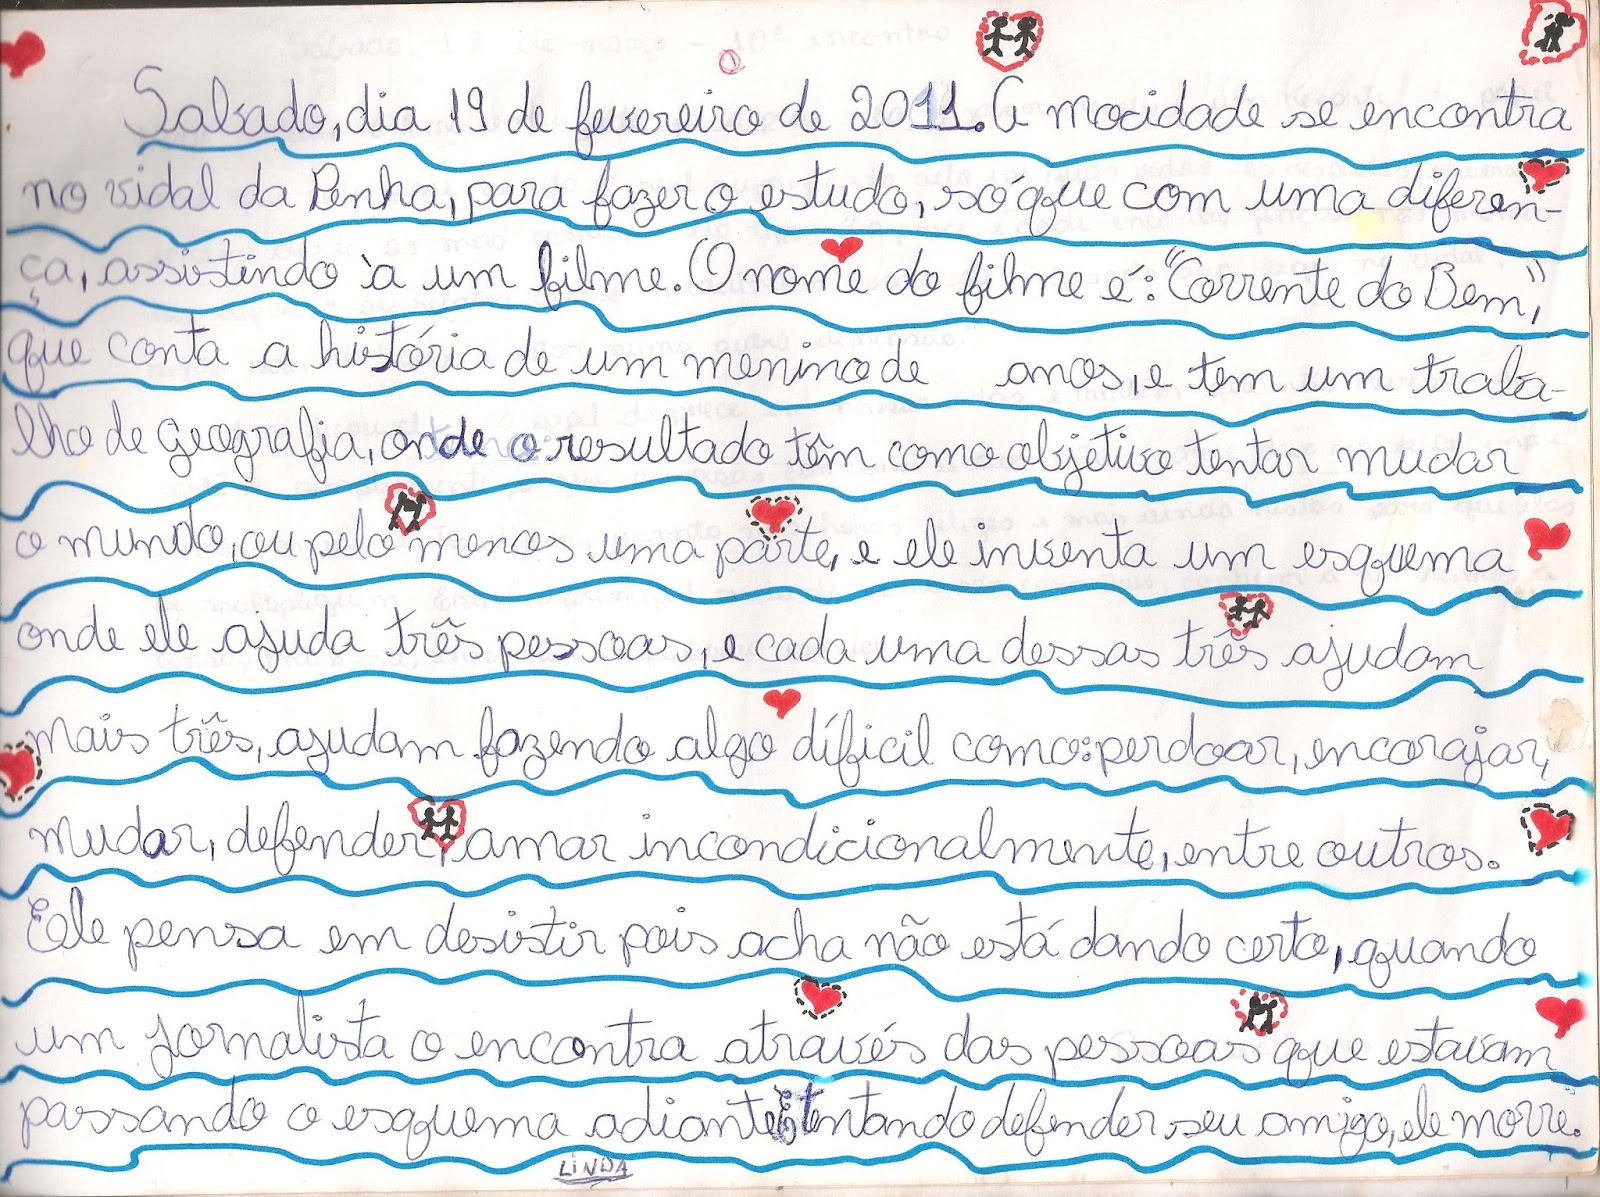 Sabado, dia 19 de fevereiro de 2011. A mocidade se encontra
no vidal da Penha, para fazer o estudo, só que com uma diferen-
ça, assistindo à um filme. O nome do filme é: "Corrente do Bem",
que conta a história de um menino de anos, e tem um traba-
lho de geografia, onde o resultado têm como objetivo tentar mudar
o mundo, ou pelo menos uma parte, e ele inventa um esquema
onde ele ajuda três pessoas, e cada uma dessas três ajudam
mais três, ajudam fazendo algo díficil como: perdoar, encorajar,
mudar, defender, amar incondicionalmente, entre outros.
Ele pensa em desistir pois acha não está dando certo, quando
um jornalista o encontra através das pessoas que estavam
passando o esquema adiante. E tentando defender seu amigo, ele morre.
LINDA